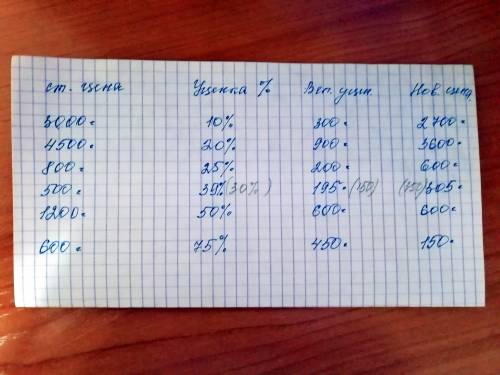 ст. цена Уценка % Вел. уцен. Нов. цена
3000= 10% 300= 2700=
4500= 20% 900= 3600=
800= 25% 200= 600=
500= 39% (30%) 195= (150) 305=
1200= 50% 600= 600=
600= 75% 450= 150=